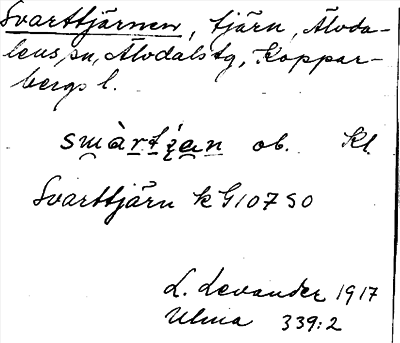 Svarttjärnen, tjärn, Älvda-
lens sn, Älvdals tg, Koppar-
bergs l.
smàrtjan ob. Kl.
Svarttjärn k G107 SO
L. Levander 1917
Ulma 339:2